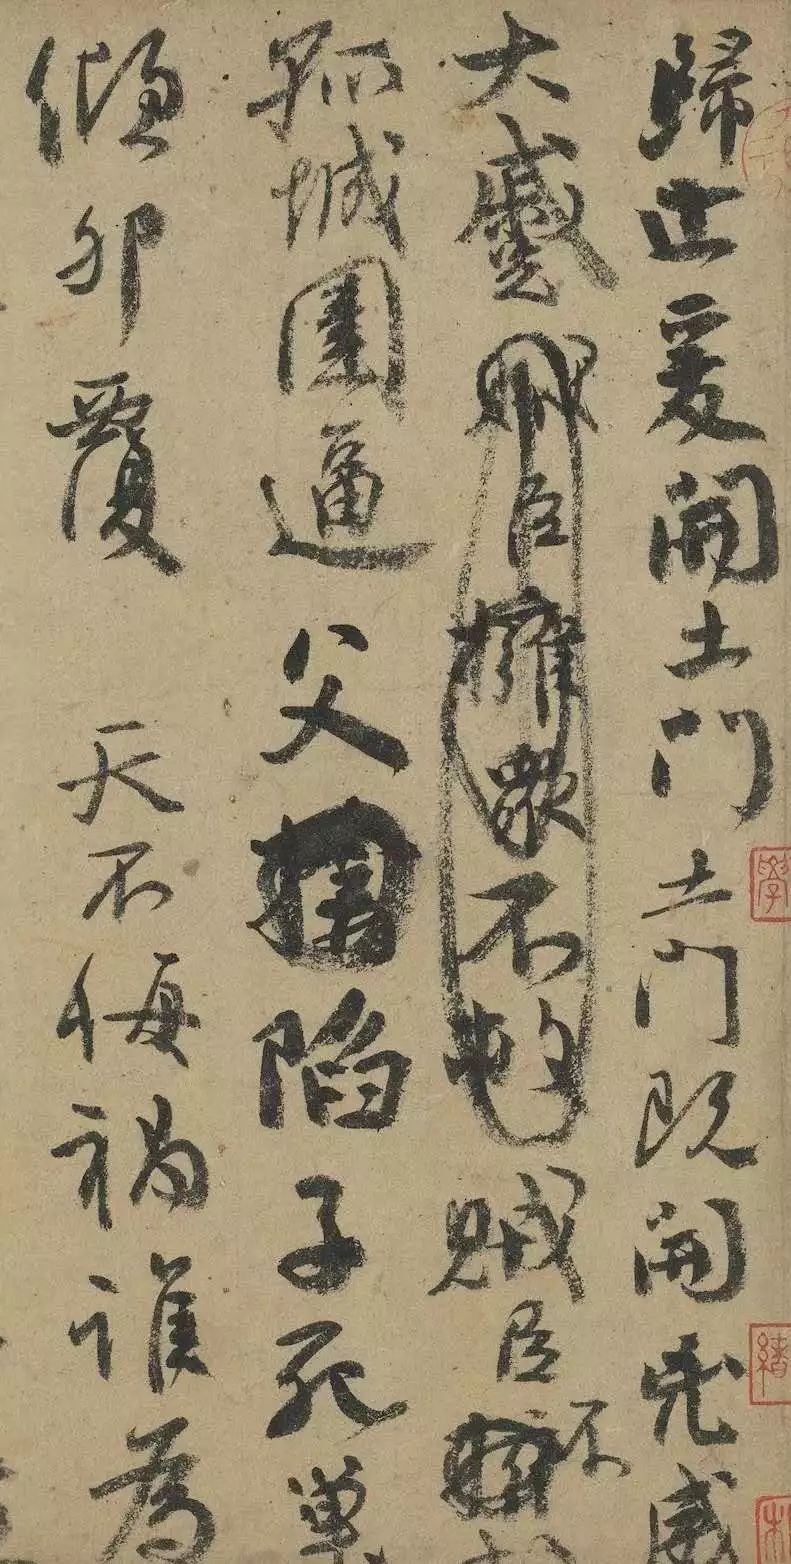 歸止爰開土門土門既開兇威
大蹙賊臣擁衆不救賊臣不
孤城圍逼父陷子死巢
傾卵覆 天不悔禍誰為